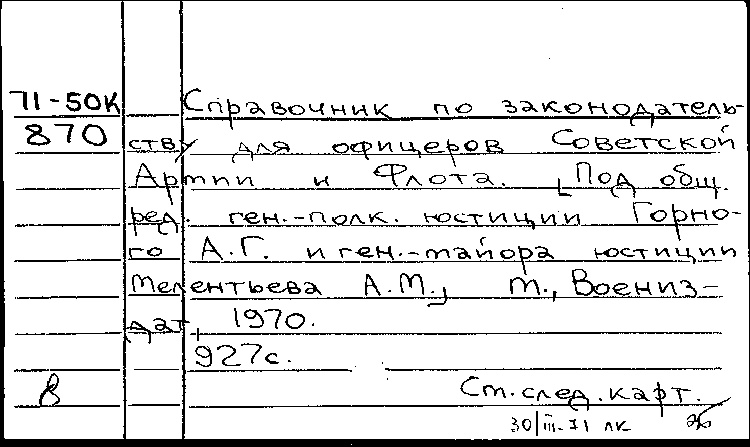 71-50К Справочник по законодатель-
870 ству для офицеров Советской
Армии и Флота. Под общ.
ред. ген.-полк. юстиции Горно-
го А.Г. и ген.-майора юстиции
Мелентьева А.М., М., Воениз-
дат, 1970.
927с.
В Ст. след. карт.
30/III-71 ЛК